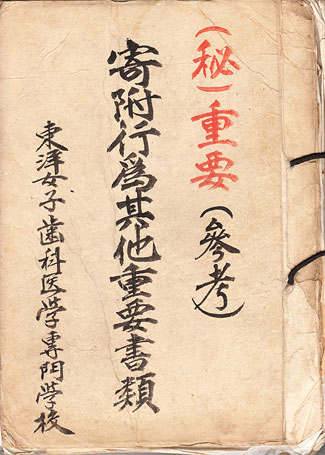 (秘)重要(參考)
寄附行爲其他重要書類
東洋女子歯科医学専門学校